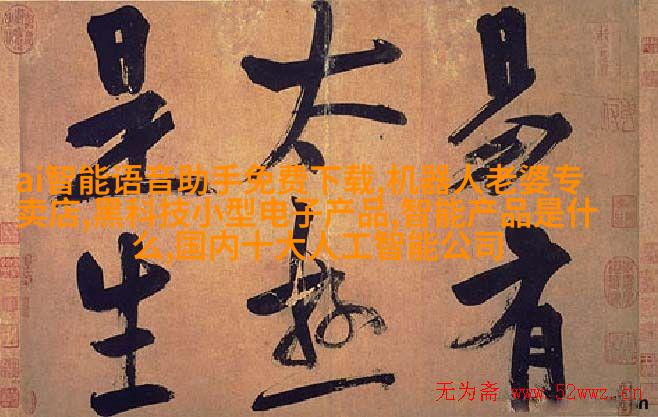 易有
太极
是生
ai智能语音助手免费下载,机器人老婆专
卖店,黑科技小型电子产品,智能产品是什
么,国内十大人工智能公司
无为斋 www.52wwz.cn
n